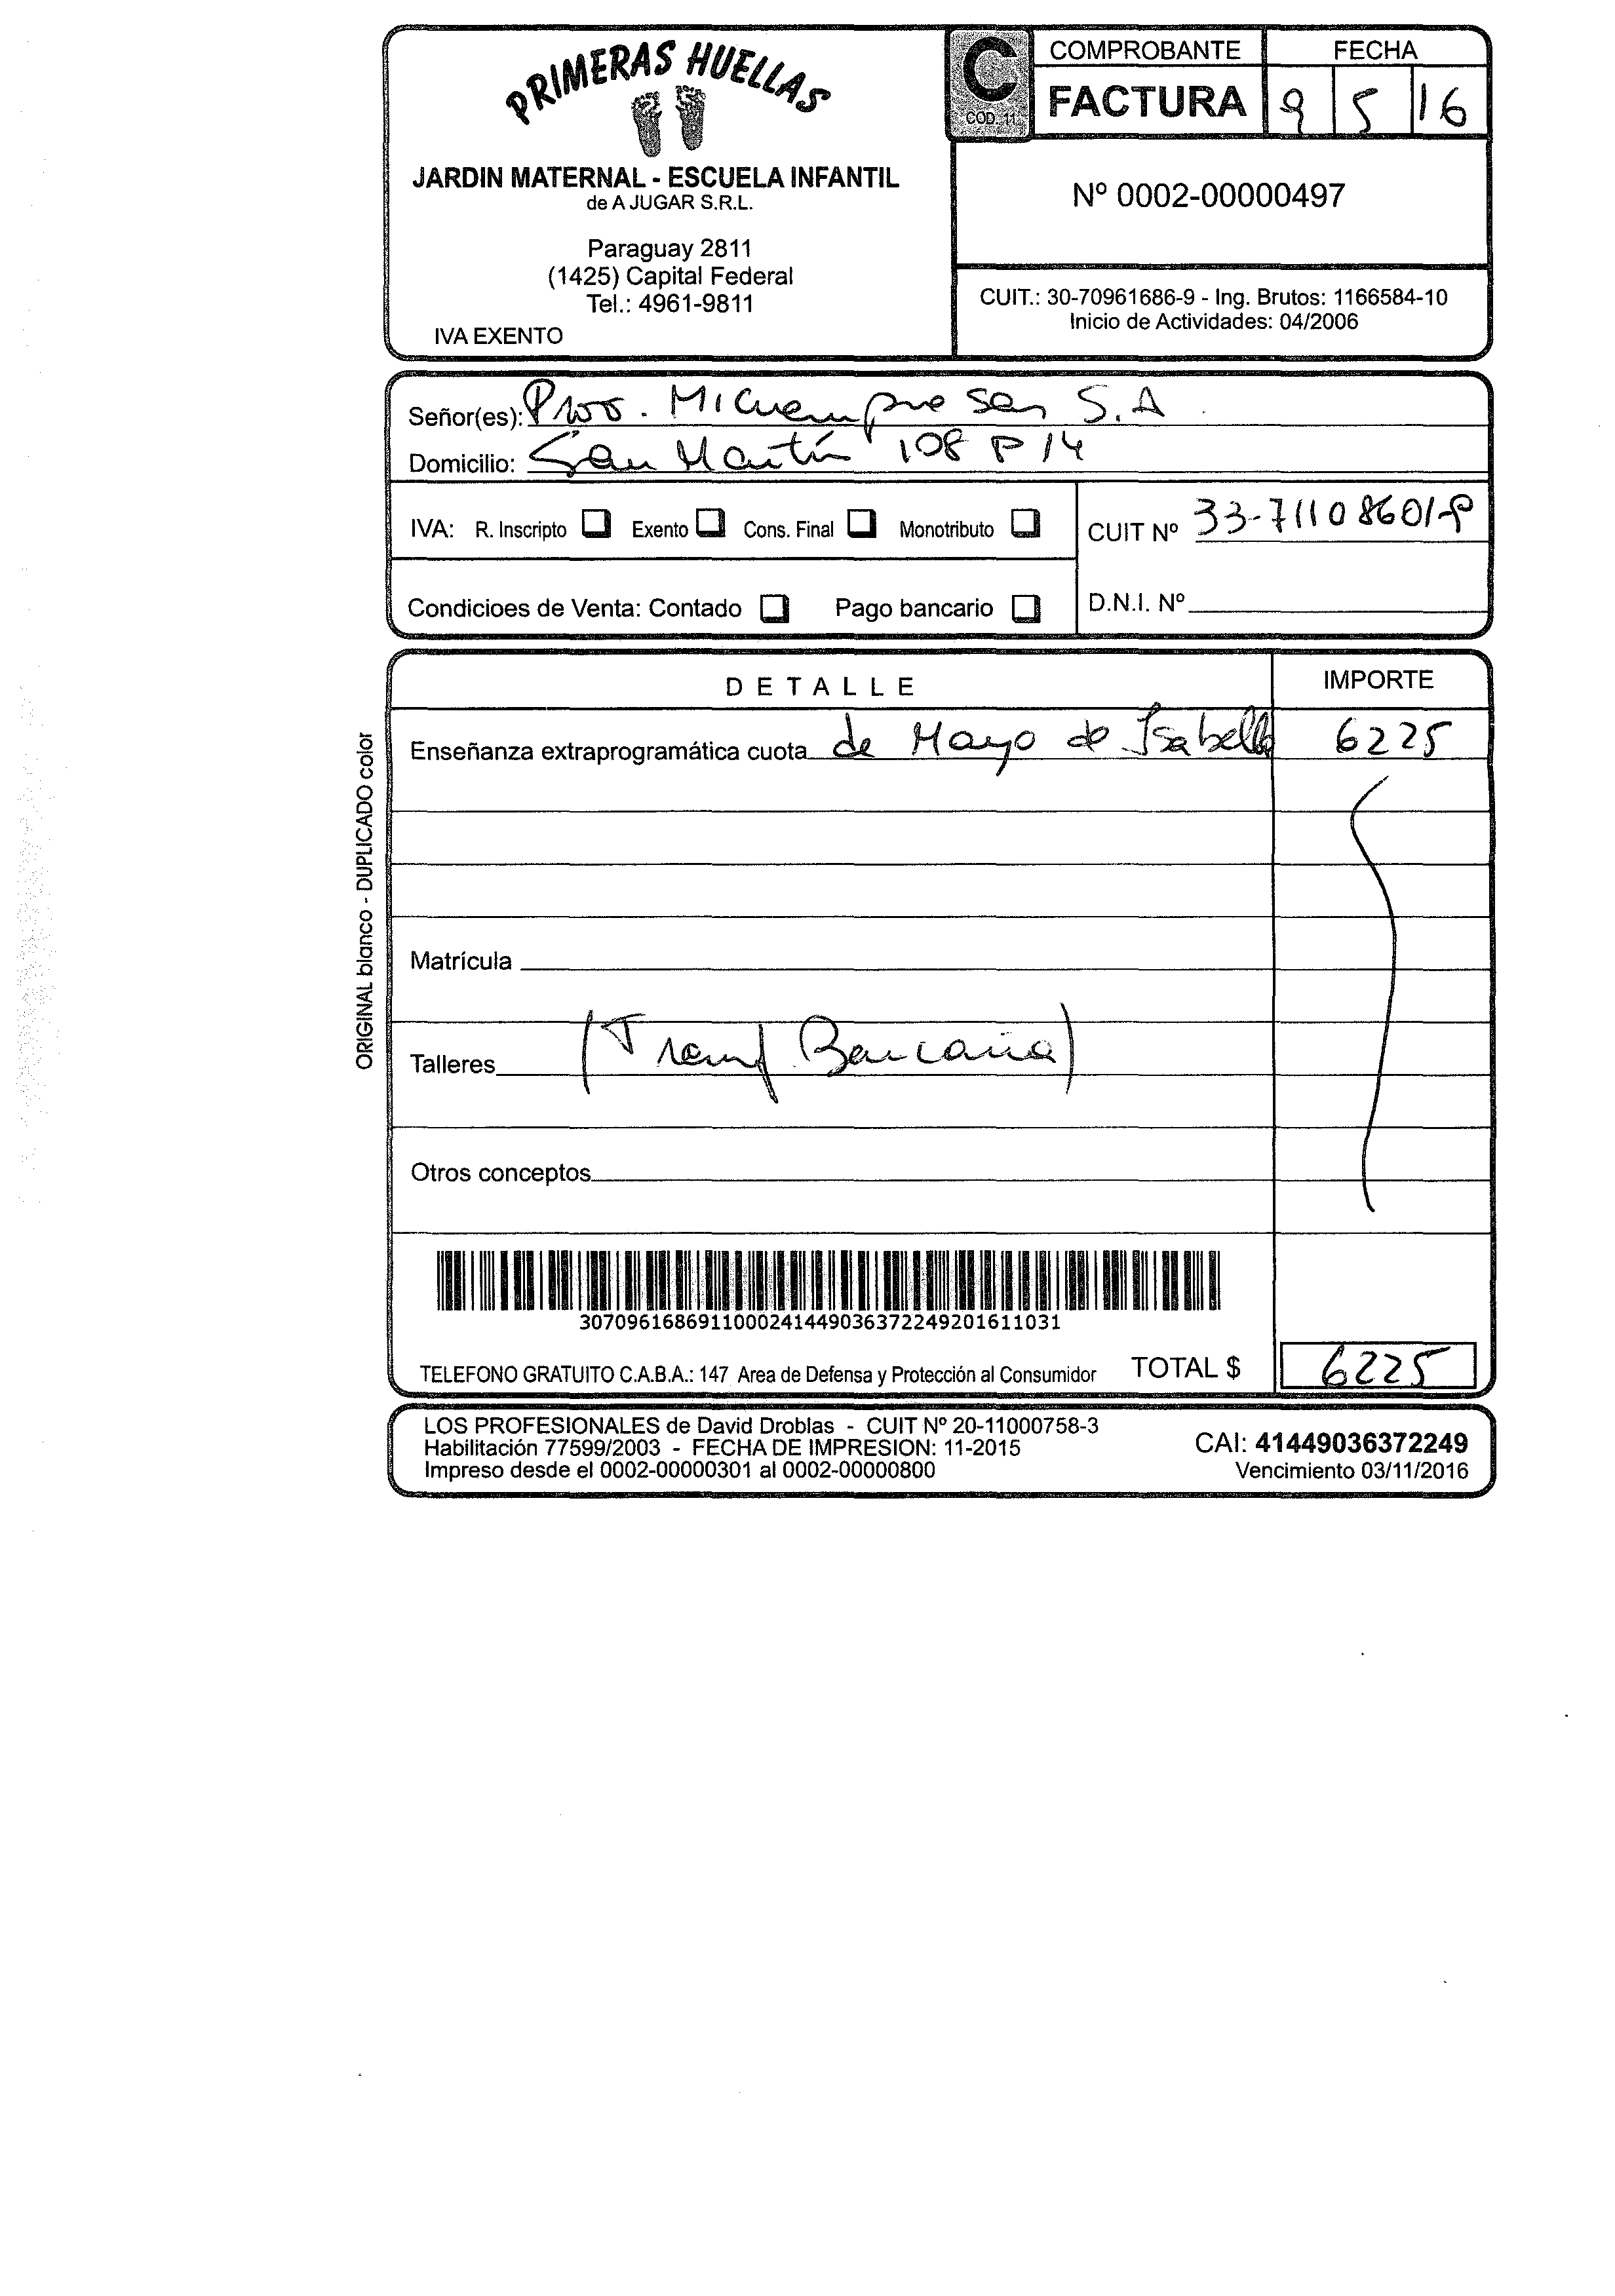 PRIMERAS HUELLAS
JARDIN MATERNAL - ESCUELA INFANTIL
de A JUGAR S.R.L.
Paraguay 2811
(1425) Capital Federal
Tel.: 4961-9811
IVA EXENTO
C
COD. 11
COMPROBANTE
FACTURA
FECHA
9 5 16
Nº 0002-00000497
CUIT.: 30-70961686-9 - Ing. Brutos: 1166584-10
Inicio de Actividades: 04/2006
Señor(es): Microempresas S.A.
Domicilio: San Martín 108 P 14
IVA: R. Inscripto Exento Cons. Final Monotributo
CUIT Nº 33-71108601-9
Condicioes de Venta: Contado Pago bancario
D.N.I. Nº
DETALLE IMPORTE
Enseñanza extraprogramática cuota de Mayo de Isabella 6225
Matrícula
Talleres (Transf Bancaria)
Otros conceptos
307096168691100024144903637224920161​1031
TELEFONO GRATUITO C.A.B.A.: 147 Area de Defensa y Protección al Consumidor TOTAL $ 6225
ORIGINAL blanco - DUPLICADO color
LOS PROFESIONALES de David Droblas - CUIT Nº 20-11000758-3
Habilitación 77599/2003 - FECHA DE IMPRESION: 11-2015
Impreso desde el 0002-00000301 al 0002-00000800
CAI: 41449036372249
Vencimiento 03/11/2016